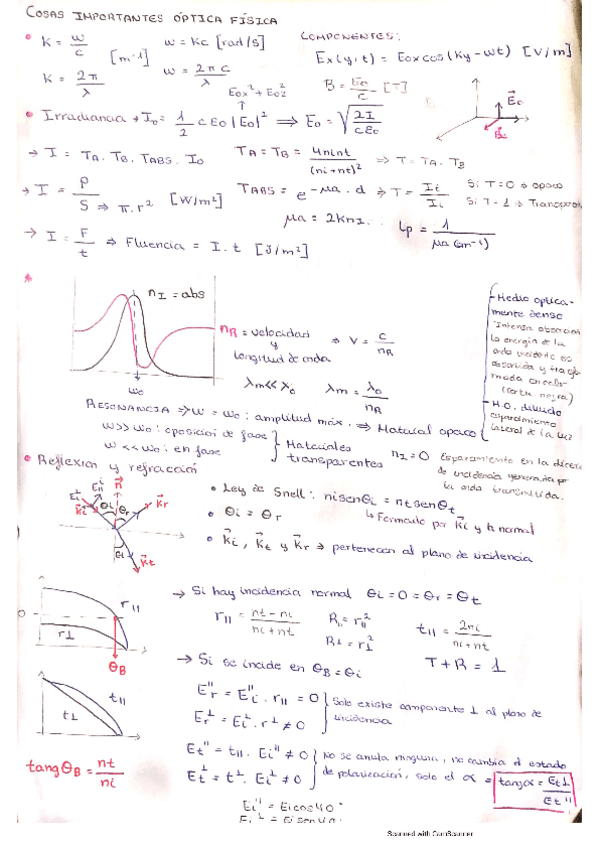 COSAS IMPORTANTES ÓPTICA FÍSICA
• K = w/c [m⁻¹] w = Kc [rad/s]
K = 2π/λ w = 2πc/λ
COMPONENTES:
Ex(y,t) = Eox cos(Ky-wt) [V/m]
B = Eo/c [T]
E⃗o
Eox² + Eoz²
• Irradiancia → Io = 1/2 c εo |Eo|² ⇒ Eo = √(2I/cεo)
→ I = TA. TB. TABS. Io TA = TB = 4nint/(ni+nt)² ⇒ T = TA. TB
→ I = P/S ⇒ π.r² [W/m²] TABS = e^-μa.d ⇒ T = Si T=0 ⇒ opaco
μa = 2knI Lp = 1/μa(m⁻¹)
→ I = F/t ⇒ Fluencia = I.t [J/m²]
nI = abs
nR = velocidad y longitud de onda ⇒ v = c/nR
λm << λo λm = λo/nR
wo
- Medio optica-
mente denso
"Intensa absorción
la energía de la
onda incidente es
absorbida y
- M.O. diluido
esparcimiento
lateral de la luz
RESONANCIA ⇒ w = wo: amplitud máx. ⇒ Material opaco
w >> wo: oposición de fase
w << wo: en fase
Materiales transparentes
nI = 0 Esparcimiento en la
de incidencia generada por
la onda transmitida.
• Reflexión y refracción
n⃗
K⃗i θi θr K⃗r
θt
K⃗t
• Ley de Snell: ni sen θi = nt sen θt
↳ Formado por K⃗i y la normal
• θi = θr
• K⃗i, K⃗t y K⃗r ⇒ pertenecen al plano de incidencia
→ Si hay incidencia normal θi = 0 = θr = θt
r|| = nt-ni/ni+nt R|| = r||² t|| = 2ni/ni+nt
R⊥ = r⊥² T + R = 1
0
r||
r⊥
θB
→ Si se incide en θB = θi
Er'' = Ei''. r|| = 0
Er⊥ = Ei⊥. r⊥ ≠ 0
Solo existe componente ⊥ al plano de
incidencia
t||
t⊥
Et'' = t||. Ei'' ≠ 0
Et⊥ = t⊥. Ei⊥ ≠ 0
No se anula ninguna, no cambia el estado
de polarización, solo el α = tangα = Et⊥/Et''
tang θB = nt/ni
Ei'' = Ei cos 40°
Scanned with CamScanner